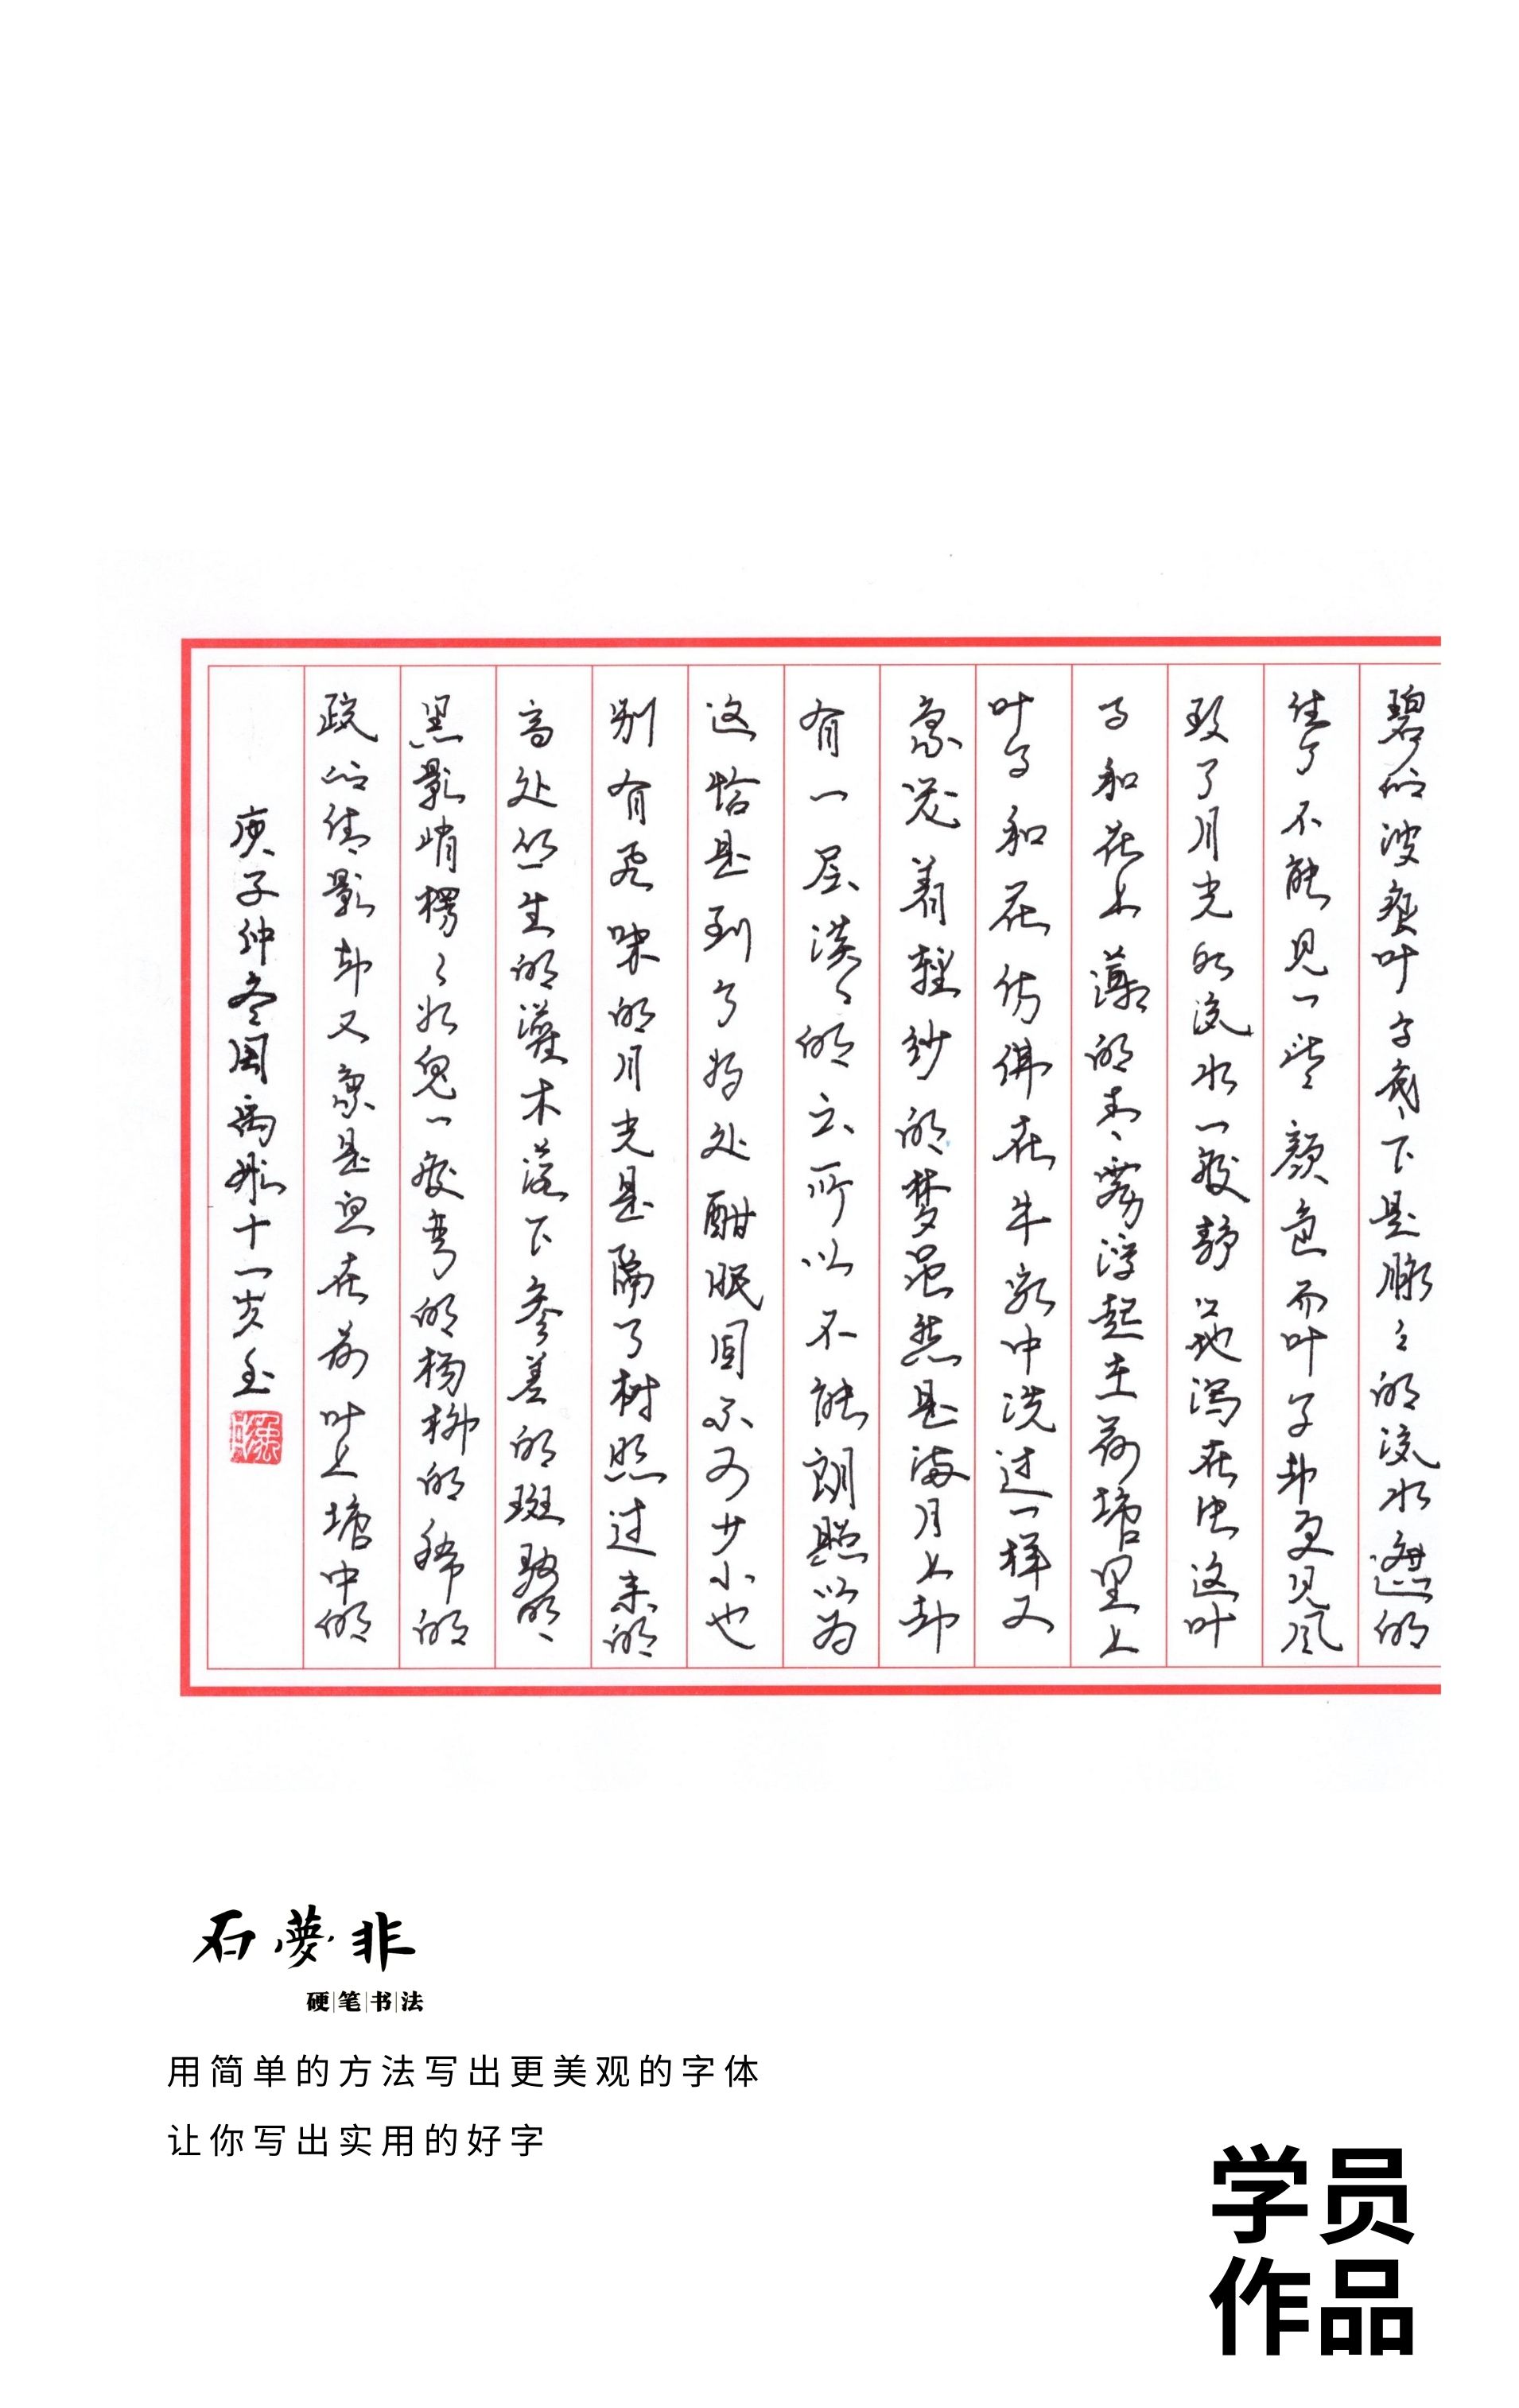 碧的波痕叶子底下是脉々的流水遮的
住了不能见一些颜色而叶子却更见风
致了月光如流水一般静々地泻在这叶
子和花上薄的青雾浮起在荷塘里上
叶子和花仿佛在牛乳中洗过一样又
象笼着轻纱的梦虽然是满月上却
有一层淡々的云所以不能朗照以为
这恰是到了好处酣眠固不可少小也
别有风味的月光是隔了树照过来的
高处丛生的灌木落下参差的斑驳的
黑影峭楞々如鬼一般弯的杨柳的稀的
疏的倩影却又象是画在荷叶上塘中的
庚子仲冬周禹彤十一岁书
石夢非
硬笔书法
用简单的方法写出更美观的字体
让你写出实用的好字
学员
作品